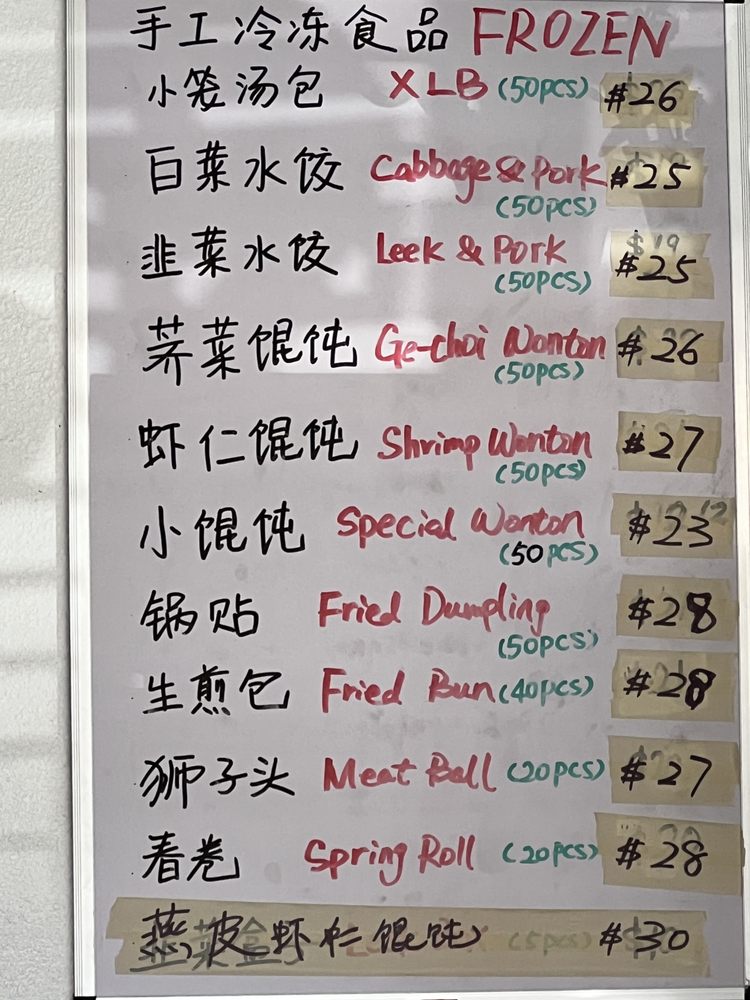 手工冷冻食品 FROZEN
小笼汤包 XLB (50pcs) $26
白菜水饺 Cabbage & Pork $25
(50pcs)
韭菜水饺 Leek & Pork $25
(50pcs)
荠菜馄饨 Ge-choi Wonton $26
(50pcs)
虾仁馄饨 Shrimp Wonton $27
(50pcs)
小馄饨 Special Wonton $23
(50pcs)
锅贴 Fried Dumpling $28
(50pcs)
生煎包 Fried Bun (40pcs) $28
狮子头 Meat Ball (20pcs) $27
春卷 Spring Roll (20pcs) $28
燕皮虾仁馄饨 $30